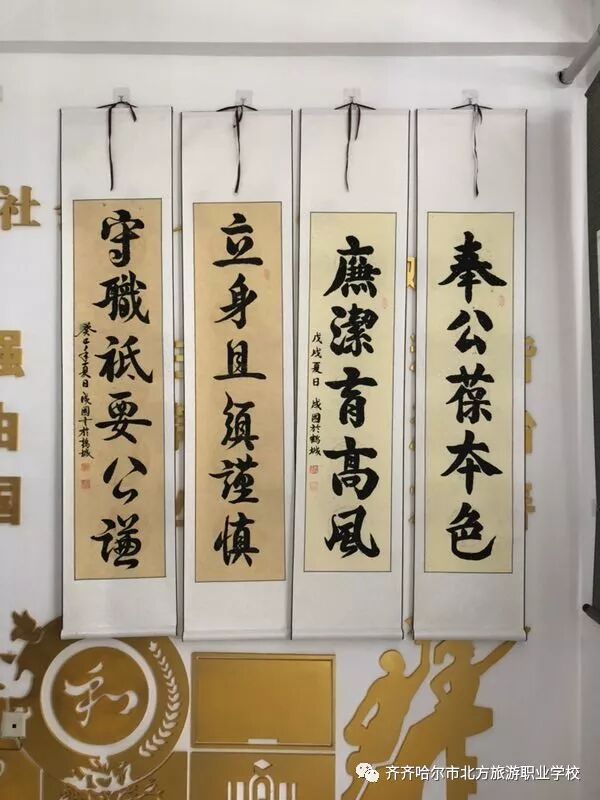 奉公葆本色
廉潔育高風
戊戌夏日 成國於鶴城
立身且須謹慎
守職祗要公謙
癸巳年夏日成國於鶴城
社
强
国
和
齐齐哈尔市北方旅游职业学校